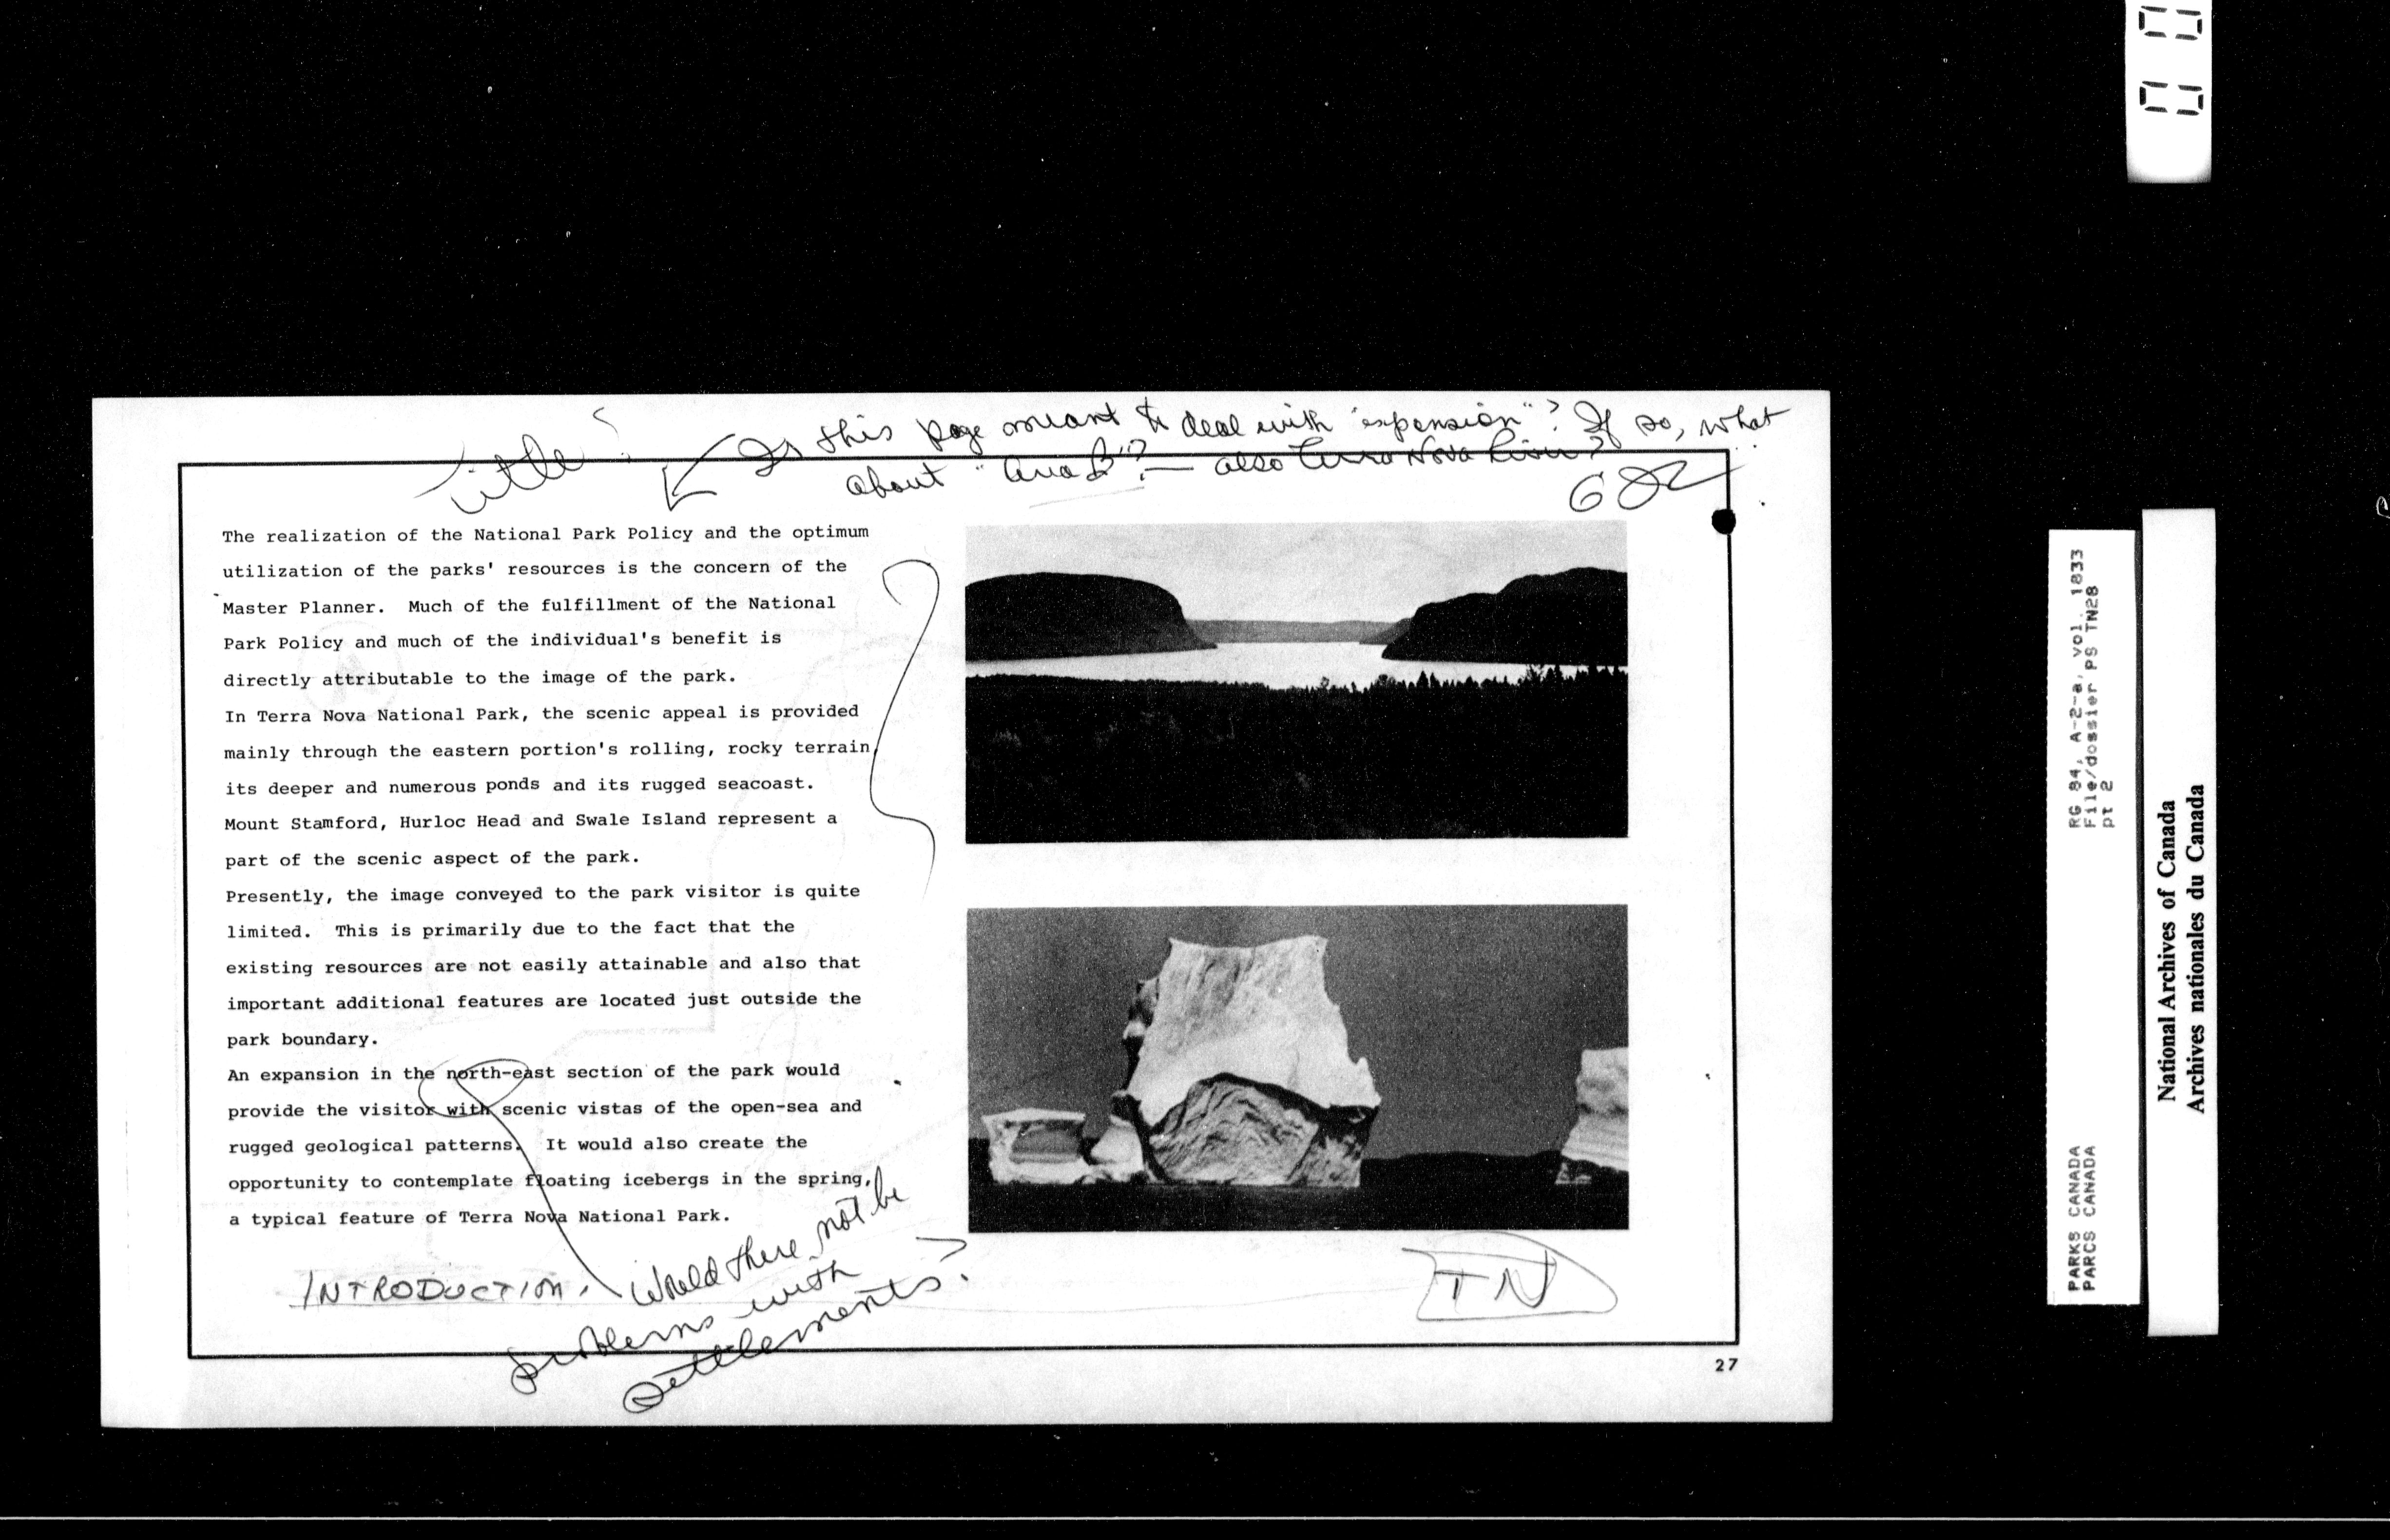 Title?
Is this page meant to deal with "expansion"? If so, what
about "Area B"? — also Terra Nova River?
The realization of the National Park Policy and the optimum
utilization of the parks' resources is the concern of the
Master Planner. Much of the fulfillment of the National
Park Policy and much of the individual's benefit is
directly attributable to the image of the park.
In Terra Nova National Park, the scenic appeal is provided
mainly through the eastern portion's rolling, rocky terrain,
its deeper and numerous ponds and its rugged seacoast.
Mount Stamford, Hurloc Head and Swale Island represent a
part of the scenic aspect of the park.
Presently, the image conveyed to the park visitor is quite
limited. This is primarily due to the fact that the
existing resources are not easily attainable and also that
important additional features are located just outside the
park boundary.
An expansion in the north-east section of the park would
provide the visitor with scenic vistas of the open-sea and
rugged geological patterns. It would also create the
opportunity to contemplate floating icebergs in the spring,
a typical feature of Terra Nova National Park.
INTRODUCTION.
Would there not be
problems with
settlements?
TN
27
RG 84, A-2-a, vol. 1833
File/dossier PS TN28
pt 2
PARKS CANADA
PARCS CANADA
National Archives of Canada
Archives nationales du Canada